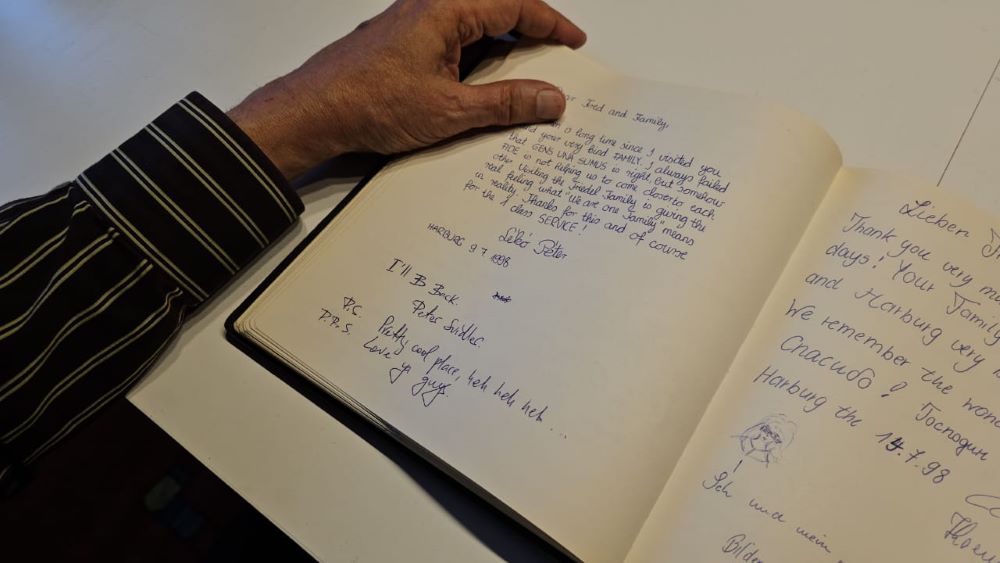 Fred and Family,
a long time since I visited you
your very kind FAMILY. I always failed
that GENS UNA SUMUS is right but somehow
FIDE is not helping us to come closer to each
other. Visiting the Friedel Family is giving the
real feeling what "We are one Family" means
in reality. Thanks for this and of course
for the 1 class SERVICE!
Lékó Péter
HARBURG 9 7 1998
I'll B Back.
Peter Svidler.
P.S. Pretty cool place, heh heh heh...
P.P.S. Love ya guys.
Lieben
Thank you very
days! Your Family
and Harburg very
We remember the
Спасибо! Господин
Harburg the 14.7.98
Ich und mein
Bilder